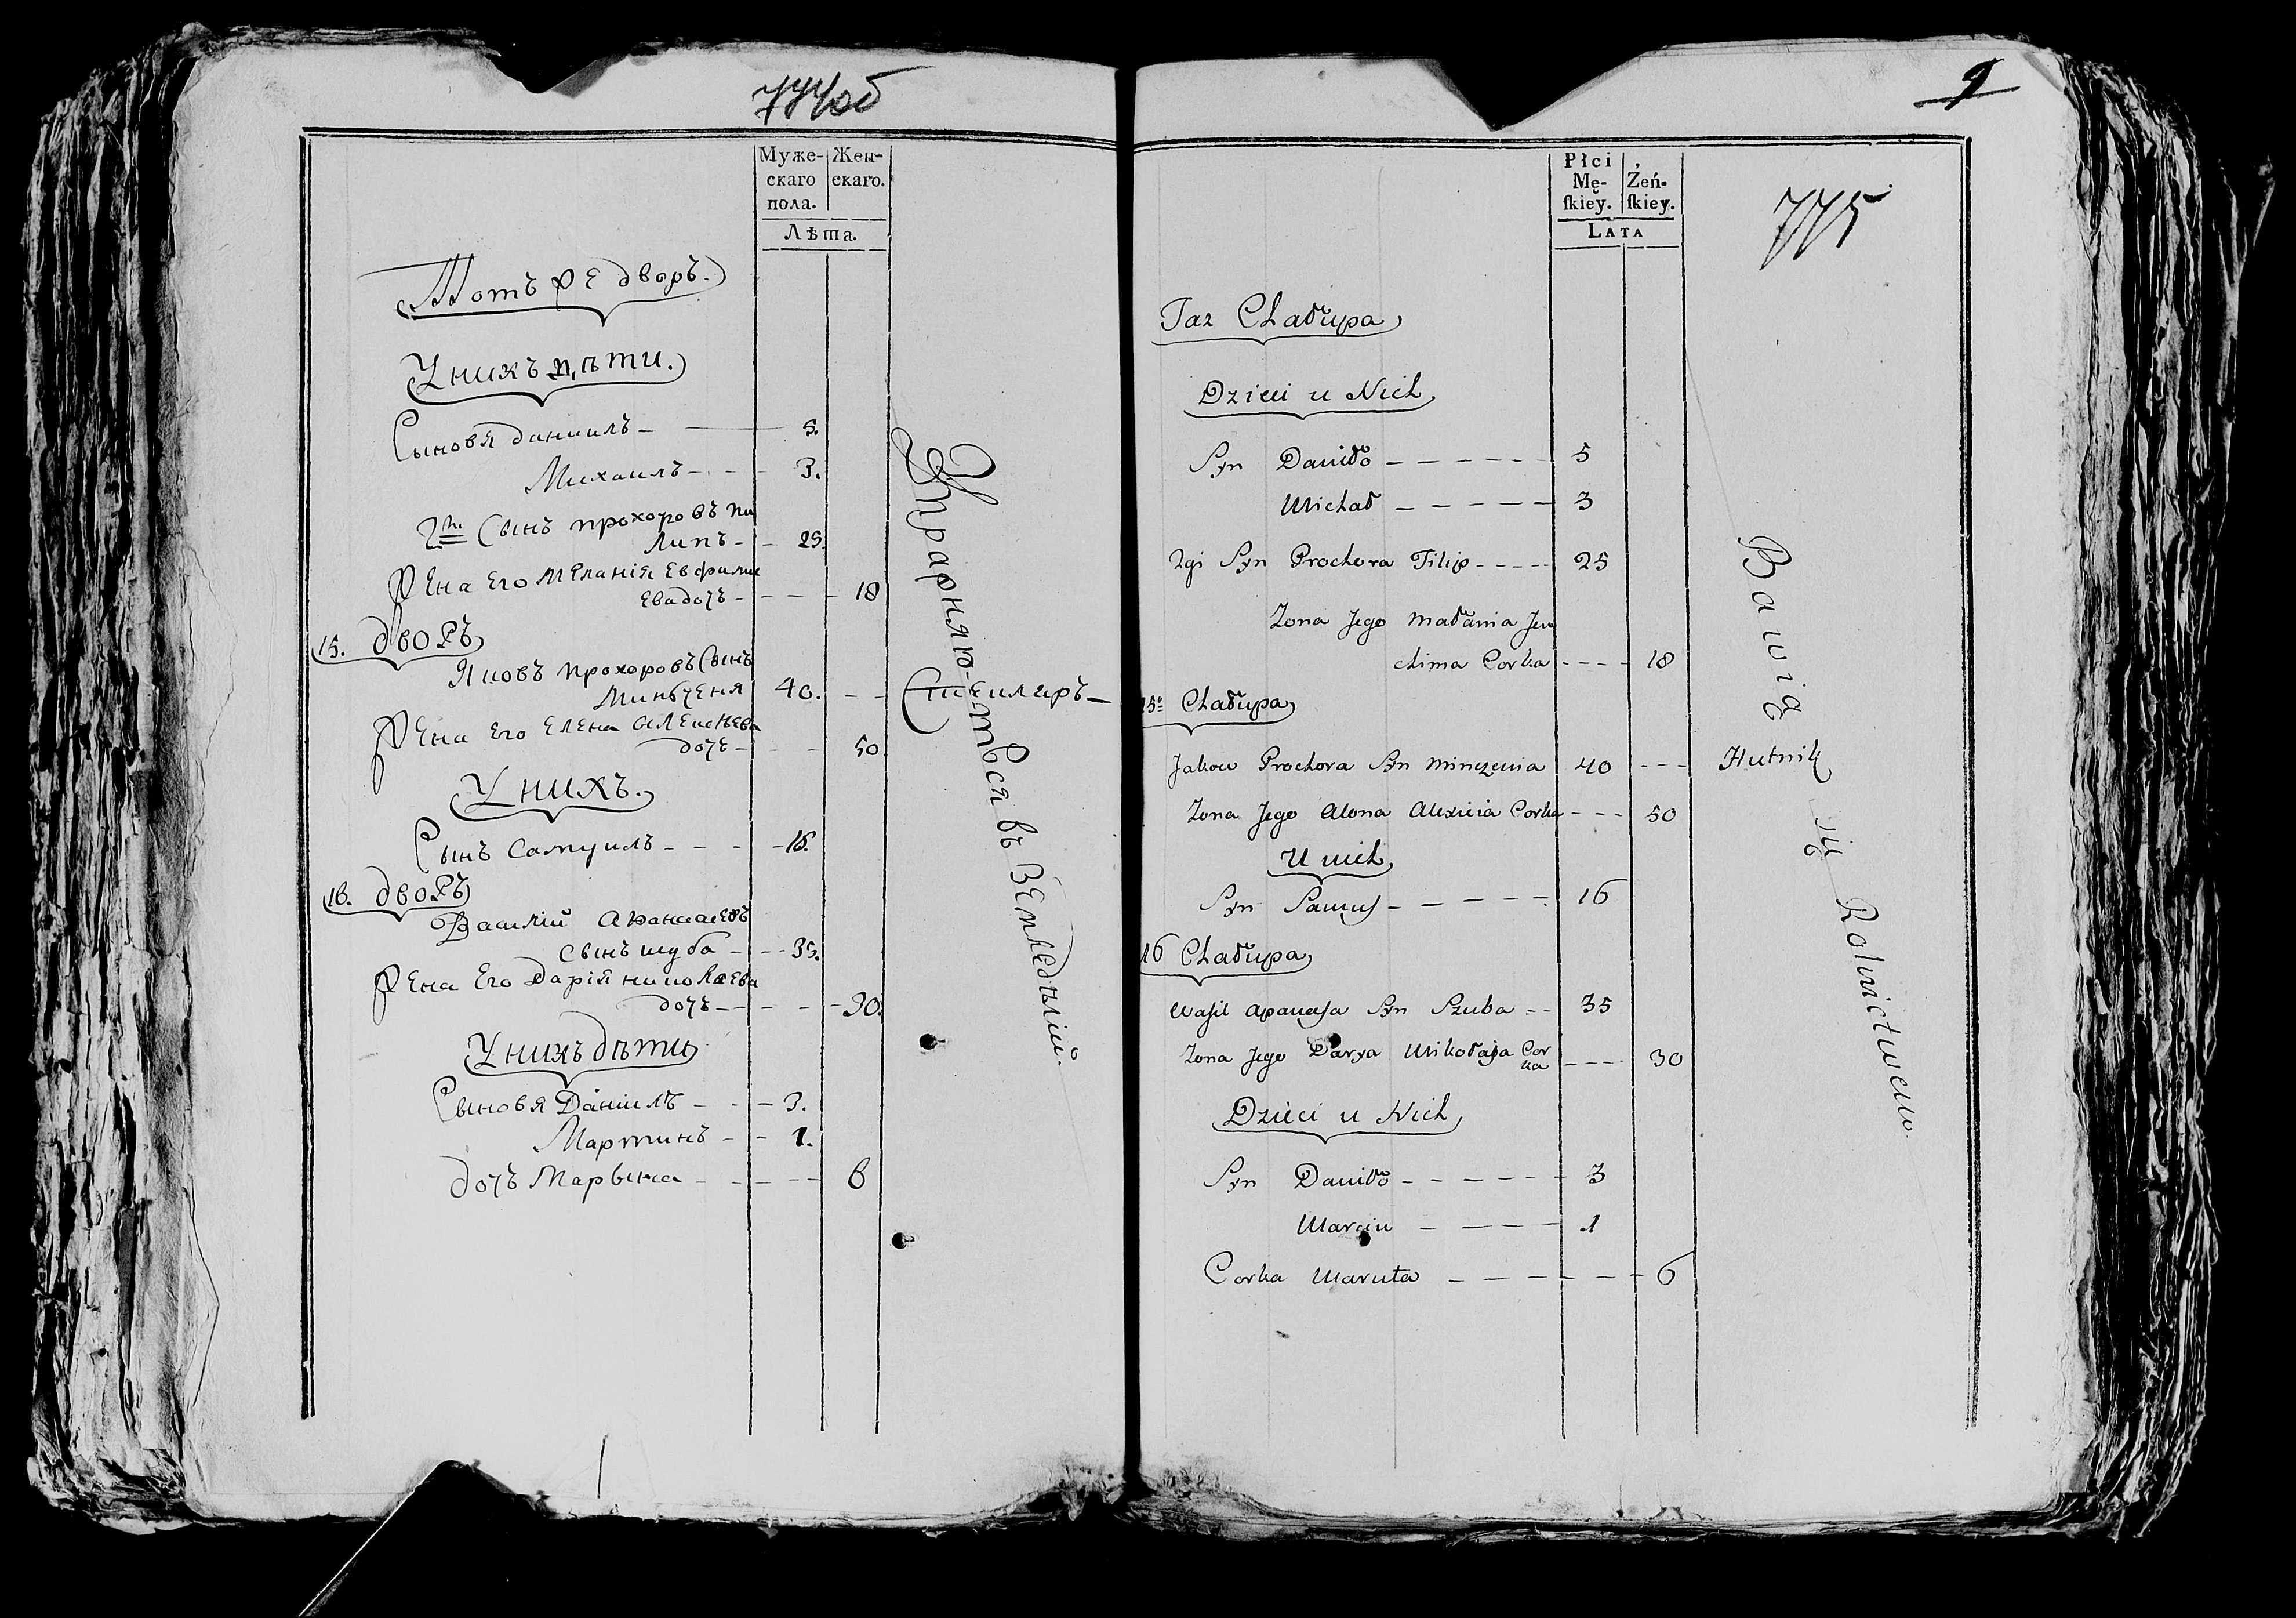 774об
Муже- Жен-
скаго скаго.
пола.
Лѣта.
Тотъ же дворъ.
У нихъ дѣти.
Сыновя Даниилъ - 5.
Михаилъ - - - 3.
2й Сынъ Прохоровъ Пи
липъ - - 25.
Жена Его Меланія Евфиміи
Ева дочь - - - - 18
15. дворъ
Яковъ Прохоровъ Сынъ
Минченя 40. - - Стекляръ -
Жена Его Елена Алексѣева
дочь - - - 50
У нихъ.
Сынъ Самуилъ - - - - 16.
16. дворъ
Василій Афанасіевъ
сынъ шуба - - - 35.
Жена Его Дарія николаева
дочь - - - - - 30.
У нихъ дѣти
Сыновя Даніилъ - - - 3.
Мартинъ - - 1.
дочь Марьяна - - - - - 6
Упражняются въ Земледѣліи.
9
775
Płci
Mę- Żeń-
skiey. skiey.
LATA
Taz Chałupa
Dzieci u Nich
Syn Daniło - - - - - - 5
Michał - - - - - 3
2gi Syn Prochora Filip - - - - - 25
Zona Jego Małania Jeu
chima Corka - - - - 18
15e Chałupa
Jakow Prochora Syn Minczenia 40 - - - Hutnik
Zona Jego Alona Alexieia Corka - - - 50
U nich
Syn Samuś - - - - - 16
16 Chałupa
Wasil Apanasa Syn Szuba - - 35
Zona Jego Darya Mikołaja Cor
ka - - - - 30
Dzieci u Nich
Syn Daniło - - - - - - 3
Marcin - - - - - 1
Corka Maruta - - - - - - - 6
Bawią się Rolnictwem